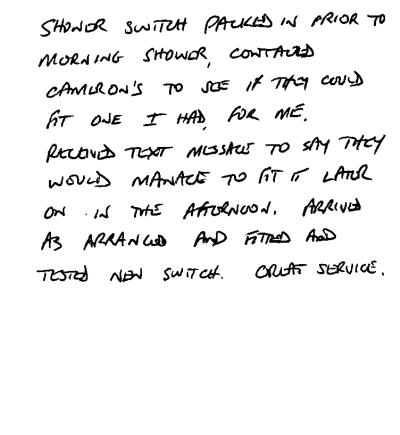 SHOWER SWITCH PACKED IN PRIOR TO
MORNING SHOWER, CONTACTED
CAMERON'S TO SEE IF THEY COULD
FIT ONE I HAD, FOR ME.
RECEIVED TEXT MESSAGE TO SAY THEY
WOULD MANAGE TO FIT IT LATER
ON IN THE AFTERNOON. ARRIVED
AS ARRANGED AND FITTED AND
TESTED NEW SWITCH. GREAT SERVICE.